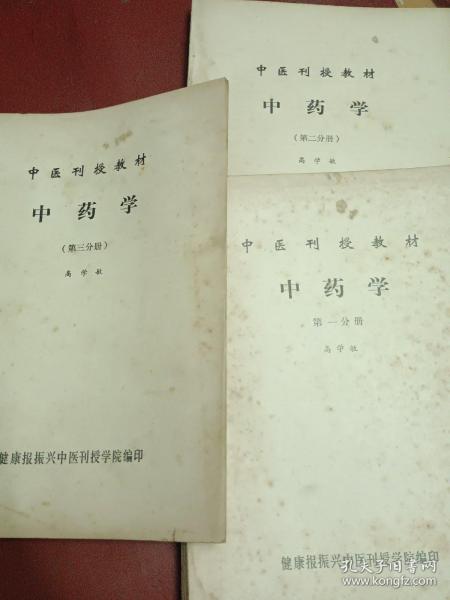 中医刊授教材
中药学
（第二分册）
高学敏
中医刊授教材
中药学
（第三分册）
高学敏
健康报振兴中医刊授学院编印
中医刊授教材
中药学
第一分册
高学敏
健康报振兴中医刊授学院编印
孔夫子旧书网
www.kongfz.com